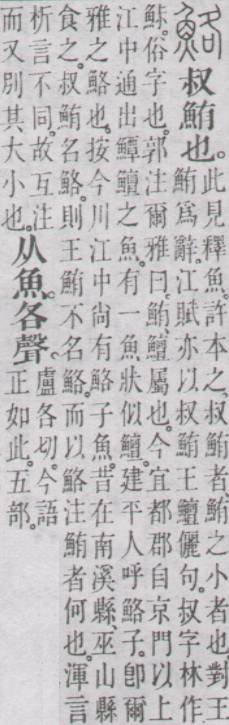 鮥 叔鮪也。
此見釋魚。許本之。叔鮪者、鮪之小者也。對王
鮪爲辭。江賦亦以叔鮪王鱣儷句。叔字林作
鮛。俗字也。郭注爾雅曰。鮪、鱣屬也。今宜都郡自京門以上
江中通出鱏鱣之魚。有一魚狀似鱣。建平人呼鮥子。卽爾
雅之鮥也。按今川江中尚有鮥子魚。昔在南溪縣、巫山縣
食之。叔鮪名鮥。則王鮪不名鮥。而以鮥注鮪者何也。渾言
析言不同。故互注
而又別其大小也。
从魚。各聲。
盧各切。今語
正如此。五部。